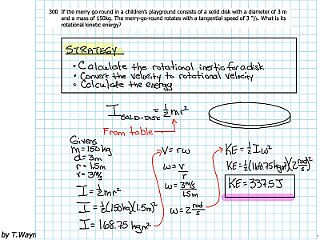 300 If the merry go round in a children's playground consists of a solid disk with a diameter of 3 m
and a mass of 150kg. The merry-go-round rotates with a tangential speed of 3 m/s. What is its
rotational kinetic energy?
STRATEGY
• Calculate the rotational inertia for a disk
• Convert the velocity to rotational velocity
• Calculate the energy
I SOLID-DISK = 1/2 mr²
From table
Givens
m = 150 kg
d = 3m
r = 1.5m
v = 3 m/s
I = 1/2 mr²
I = 1/2 (150kg)(1.5m)²
I = 168.75 kgm²
V = rω
ω = v/r
ω = 3 m/s / 1.5m
ω = 2 rad/s
KE = 1/2 I ω²
KE = 1/2 (168.75 kgm²)(2 rad/s)²
KE = 337.5 J
by T.Wayne